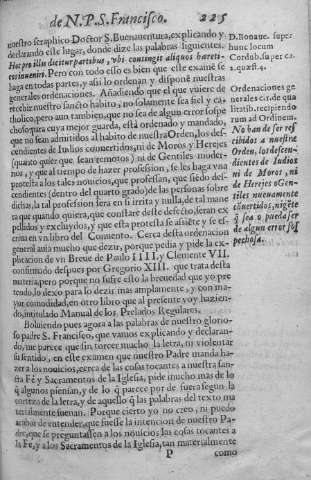 de N. P. S. Francisco. 225
nuestro seraphico Doctor S. Buenauentura, explicando y
declarando este lugar, donde dize las palabras siguientes.
Hoc pro illis dicitur partibus, vbi contingit aliquos hæreti-
cos inueniri. Pero con todo esso es bien que este examẽ se
haga en todas partes, y assi lo ordenan y disponẽ nuestras
generales ordenaciones. Añadiendo que el que viniere de
recebir nuestro sancto habito, no solamente sea fiel y ca-
tholico, pero aun tambien, que no sea de algun error sospe
choso, para cuya mejor guarda, està ordenado y mandado,
que no sean admitidos al habito de nuestra Orden, los des-
cendientes de Iudios conuertidos, ni de Moros y Herejes
(quanto quier que sean remotos) ni de Gentiles moder-
nos, y que al tiempo de hazer profession, se les haga vna
protesta a los tales nouicios, que professan, que siẽdo des-
cendientes (dentro del quarto grado) de las personas sobre
dichas, la tal profession sera en si irrita y nulla, de tal mane
ra que quando quiera, que constare deste defecto, seran ex
pellidos y excluydos, y que esta protesta se assiẽte y se es-
criua en vn libro del Conuento. Cerca desta ordenacion
general auia mucho que dezir, porque pedia y pide la ex-
plicacion de vn Breue de Paulo IIII. y Clemente VII.
confirmado despues por Gregorio XIII. que trata desta
materia, pero porque no sufre esto la breuedad que yo pre
tendo, lo dexo para lo dezir mas amplamente, y con ma-
yor comodidad, en otro libro que al presente voy hazien-
do, intitulado Manual de los Prelados Regulares.
Boluiendo pues agora a las palabras de nuestro glorio-
so padre S. Francisco, que vamos explicando y declaran-
do, me parece que sin torcer mucho la letra, ni violentar
su sentido, en este examen que nuestro Padre manda ha-
zer a los nouicios, cerca de las cosas tocantes a nuestra san-
cta Fè y Sacramentos de la Iglesia, pide mucho mas de lo
q̃ algunos piensan, y de lo q̃ parece por de fuera segun la
corteza de la letra, y de aquello q̃ las palabras del texto ma
terialmente suenan. Porque cierto yo no creo, ni puedo
acabar de entender, que fuesse la intencion de nuestro Pa-
dre, que se preguntassen a los nouicios, las cosas tocantes a
la Fe, y a los Sacramentos de la Iglesia, tan materialmente
P como
D. Bonaue. super
hunc locum
Cordub. super ca.
2. quæst. 4.
Ordenaciones ge
nerales ca. de qua
litatib. recipiendo
rum ad Ordinem.
No han de ser res
cibidos a nuestra
Orden, los descen
dientes de Iudios
ni de Moros, ni
de Herejes o Gen-
tiles nueuamente
cõuertidos, ni gẽte
q̃ sea o pueda ser
de algun error sos
pechosa.